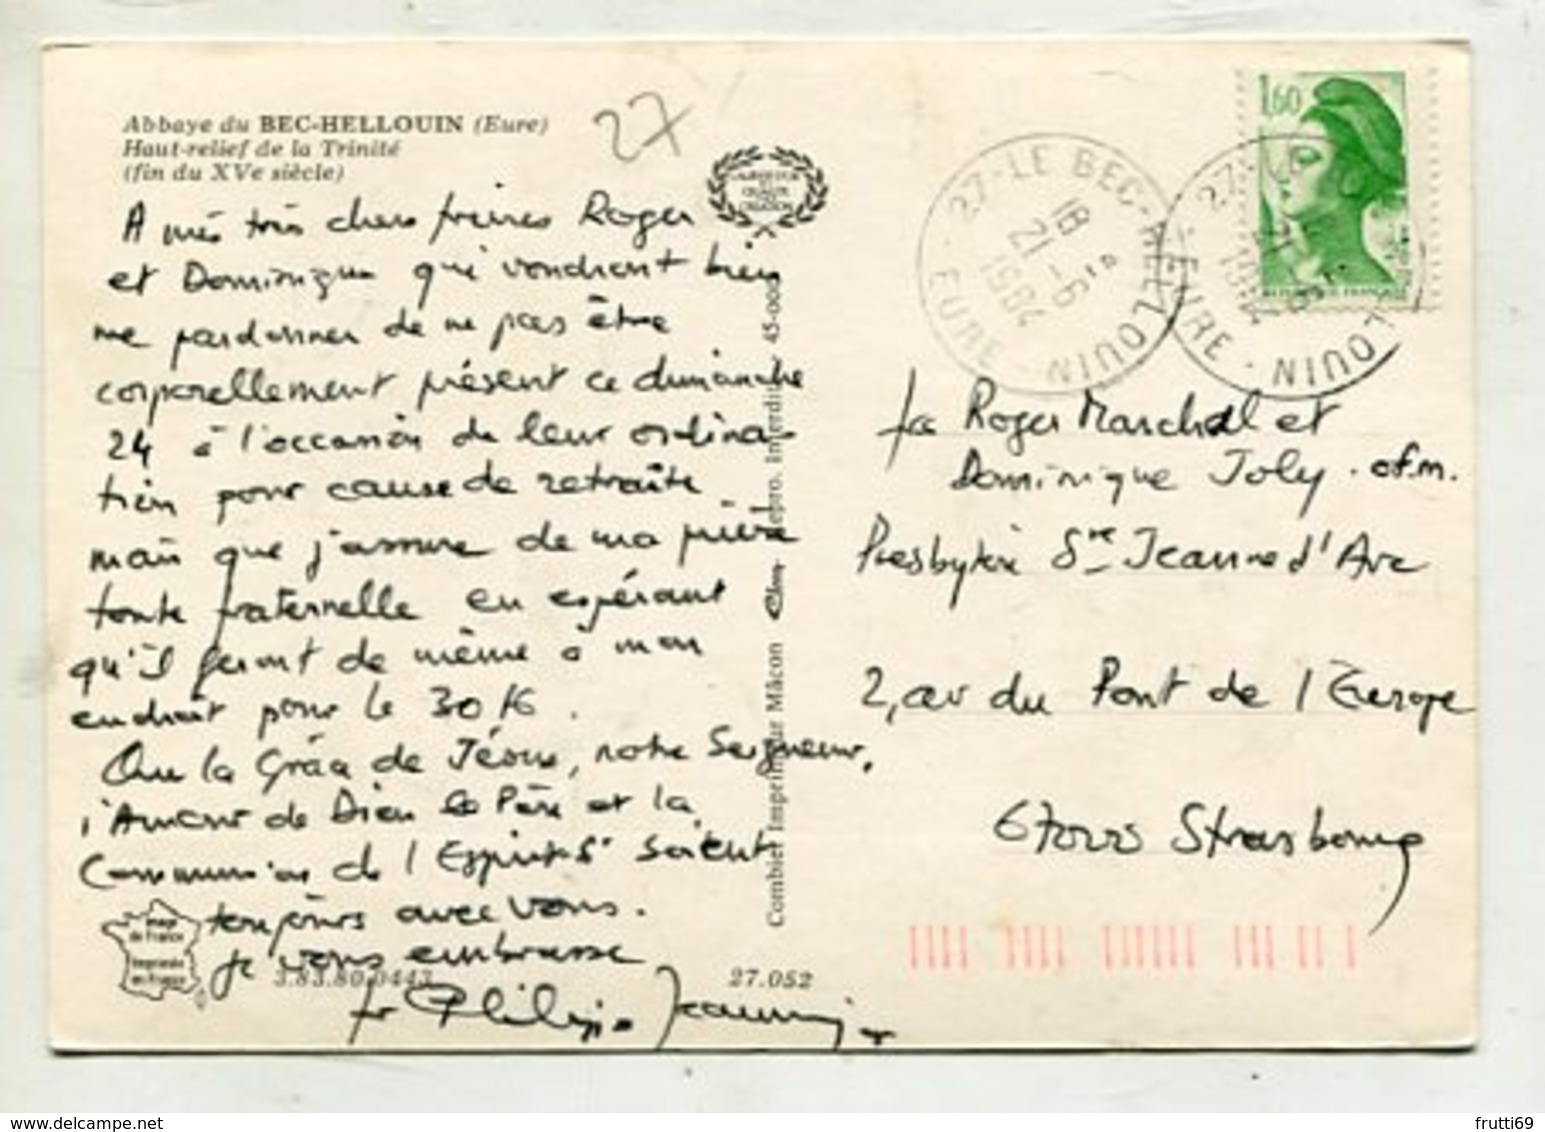 Abbaye du BEC-HELLOUIN (Eure)
Haut-relief de la Trinité
(fin du XVe siècle)
27
A mes très chers frères Roger
et Dominique qui voudront bien
me pardonner de ne pas être
corporellement présent ce dimanche
24 à l'occasion de leur ordina-
tion pour cause de retraite
mais que j'assure de ma prière
toute fraternelle en espérant
qu'il feront de même à mon
endroit pour le 30/6.
Que la Grâce de Jésus, notre Seigneur,
l'Amour de Dieu le Père et la
Communion de l'Esprit St soient
toujours avec vous.
Je vous embrasse
fr Philippe
image
de France
imprimée
en France
3.83.80.0443
27.052
Combier Imprimeur Mâcon
45-00
1,60
27-LE BEC-HELLOUIN
18 H
21-6
1984
EURE
fr Roger Marchal et
Dominique Joly. ofm.
Presbytère Ste Jeanne d'Arc
2, av du Pont de l'Europe
67000 Strasbourg
frutti69
www.delcampe.net